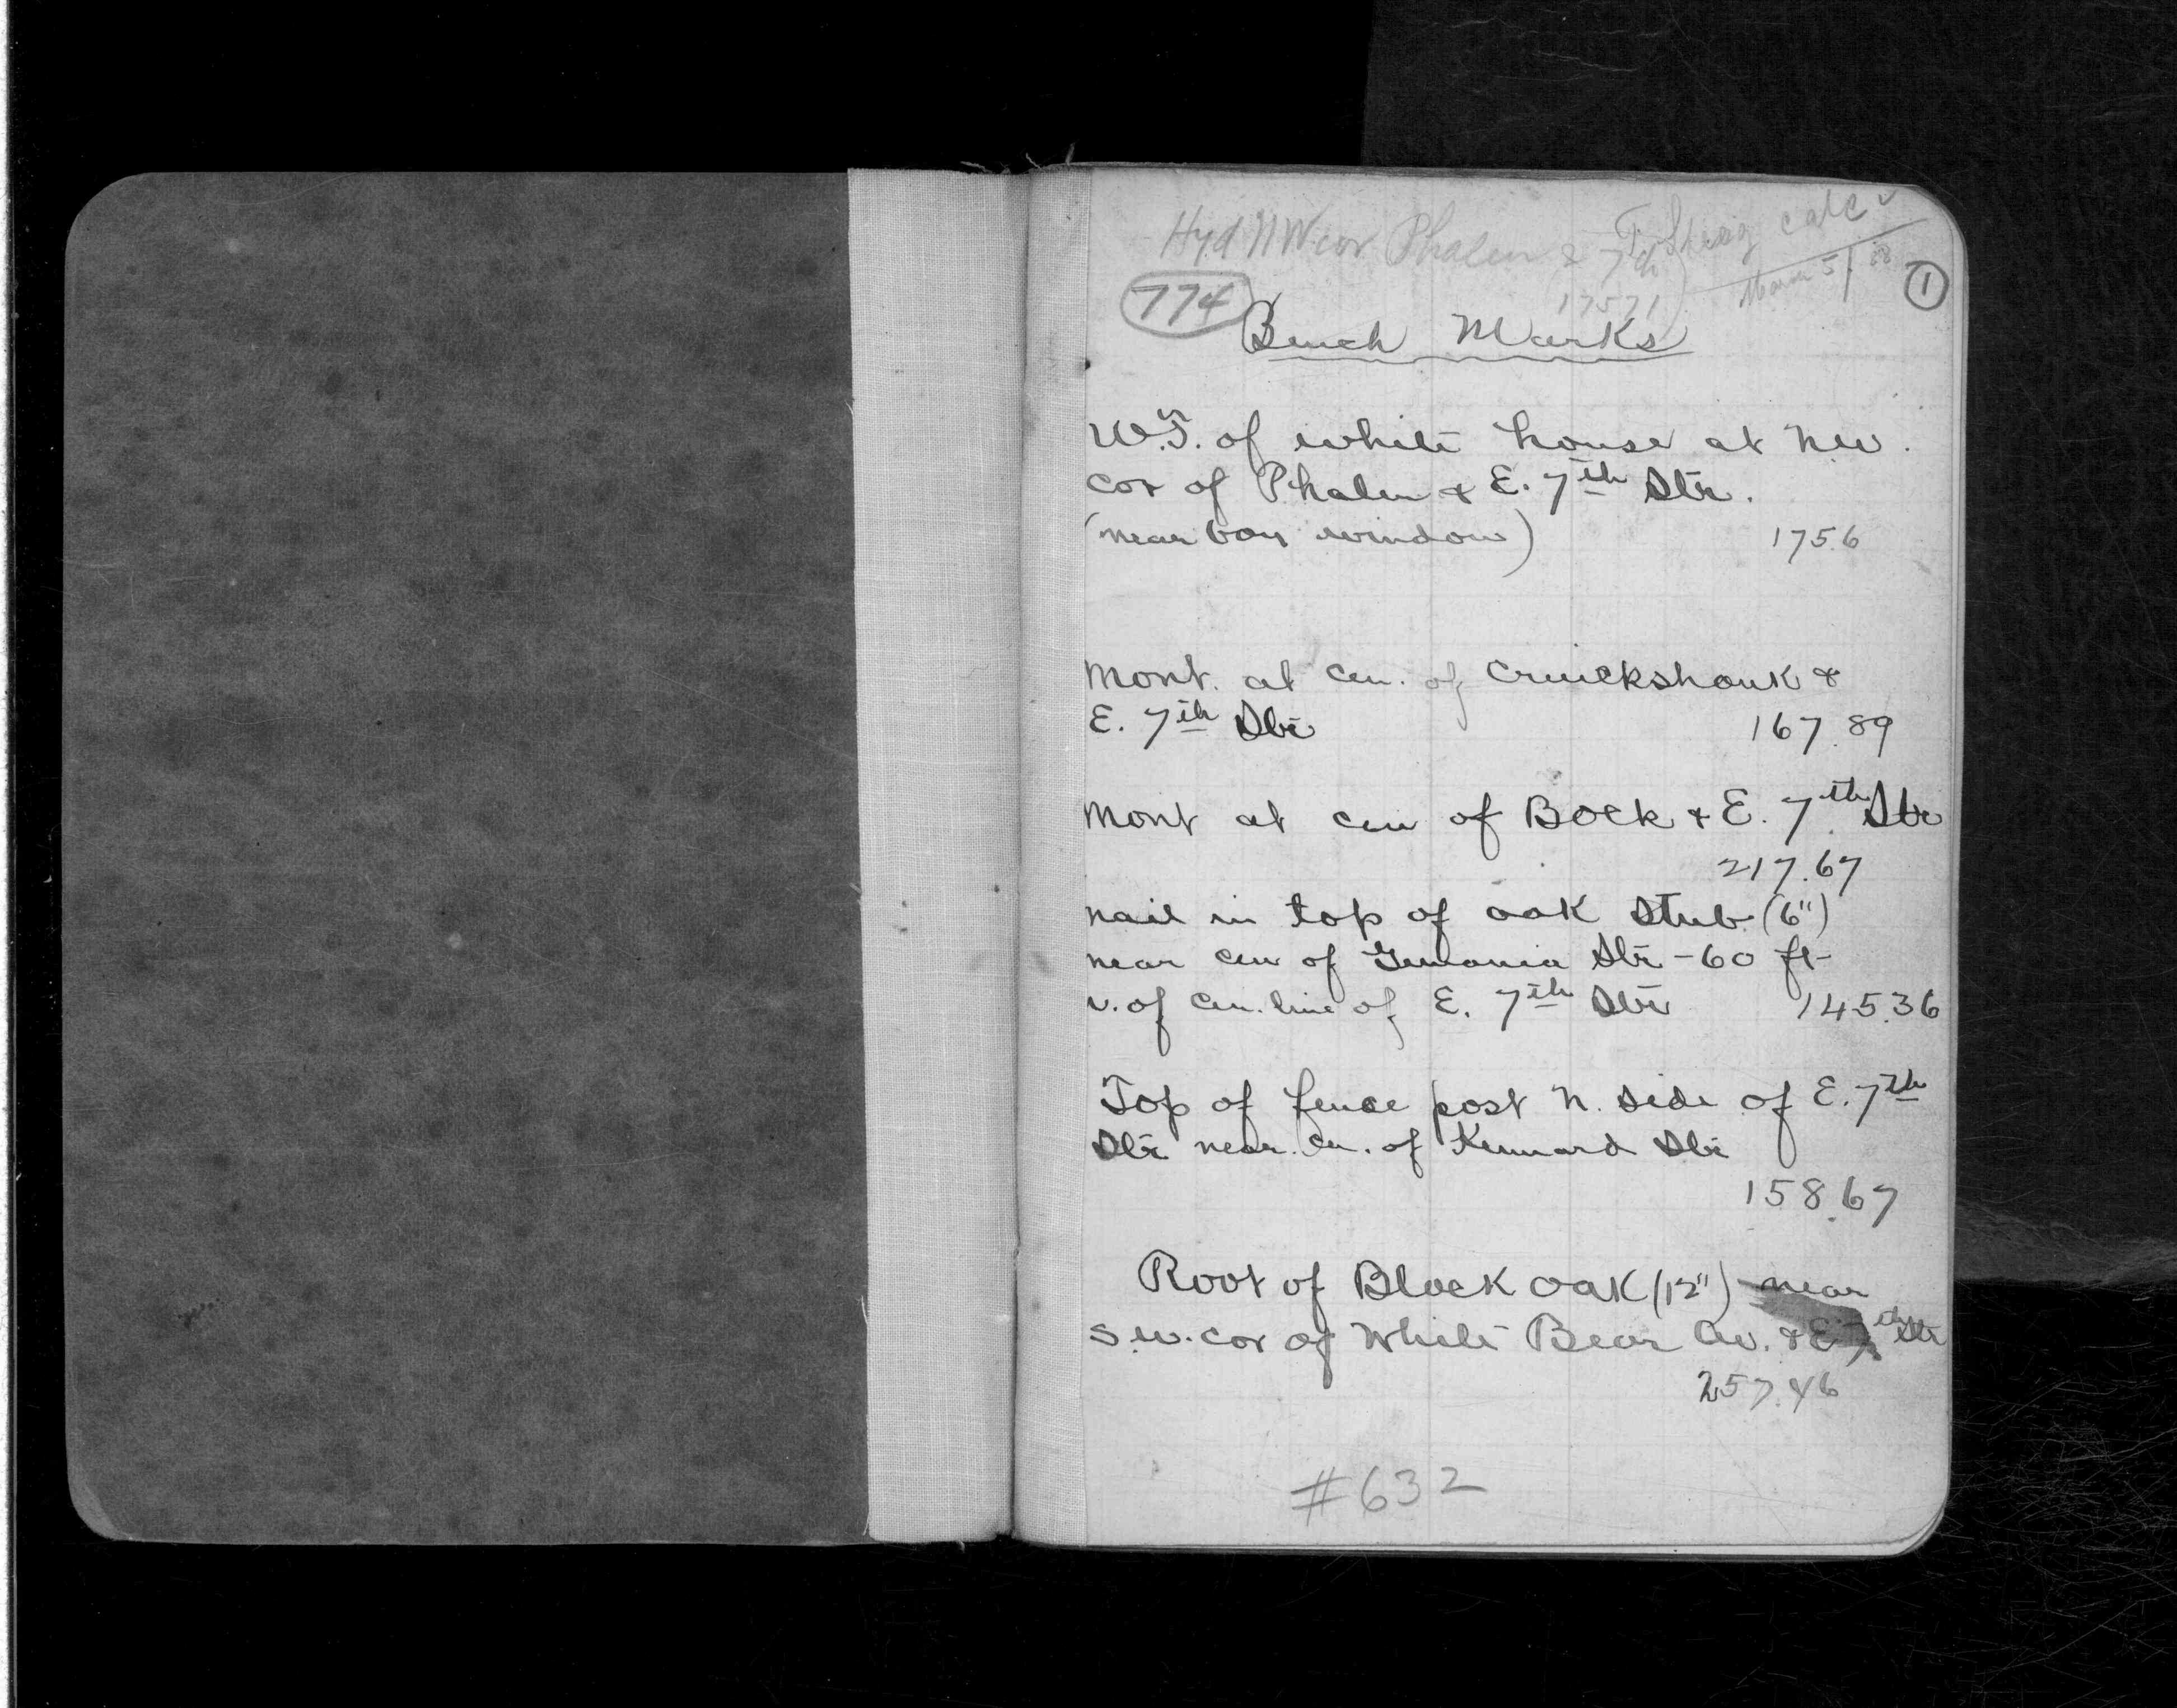 Hyd NW cor Phalen & 7th
calc
1
774
17571
Bench Marks
W.T. of white house at N.W.
cor of Phalen & E. 7th Str.
(near bay window) 175.6
Mont. at cen. of Cruickshank &
E. 7th Str 167.89
Mont at cen of Bock & E. 7th Str
217.67
nail in top of oak stub (6")
near cen of Germania Str - 60 ft
of cen. line of E. 7th Str 145.36
Top of fence post N. side of E. 7th
Str near cen. of Kennard Str
158.67
Root of Black oak (12") near
S.W. cor of White Bear Av. & E 7th Str
257.46
#632